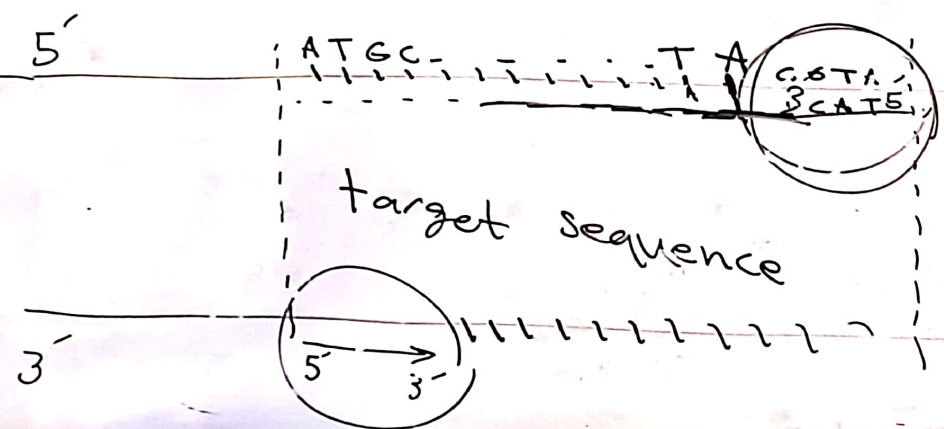 5′
A T G C - - - - - - T A
3 C A T 5′
target sequence
3′
5′ 3′